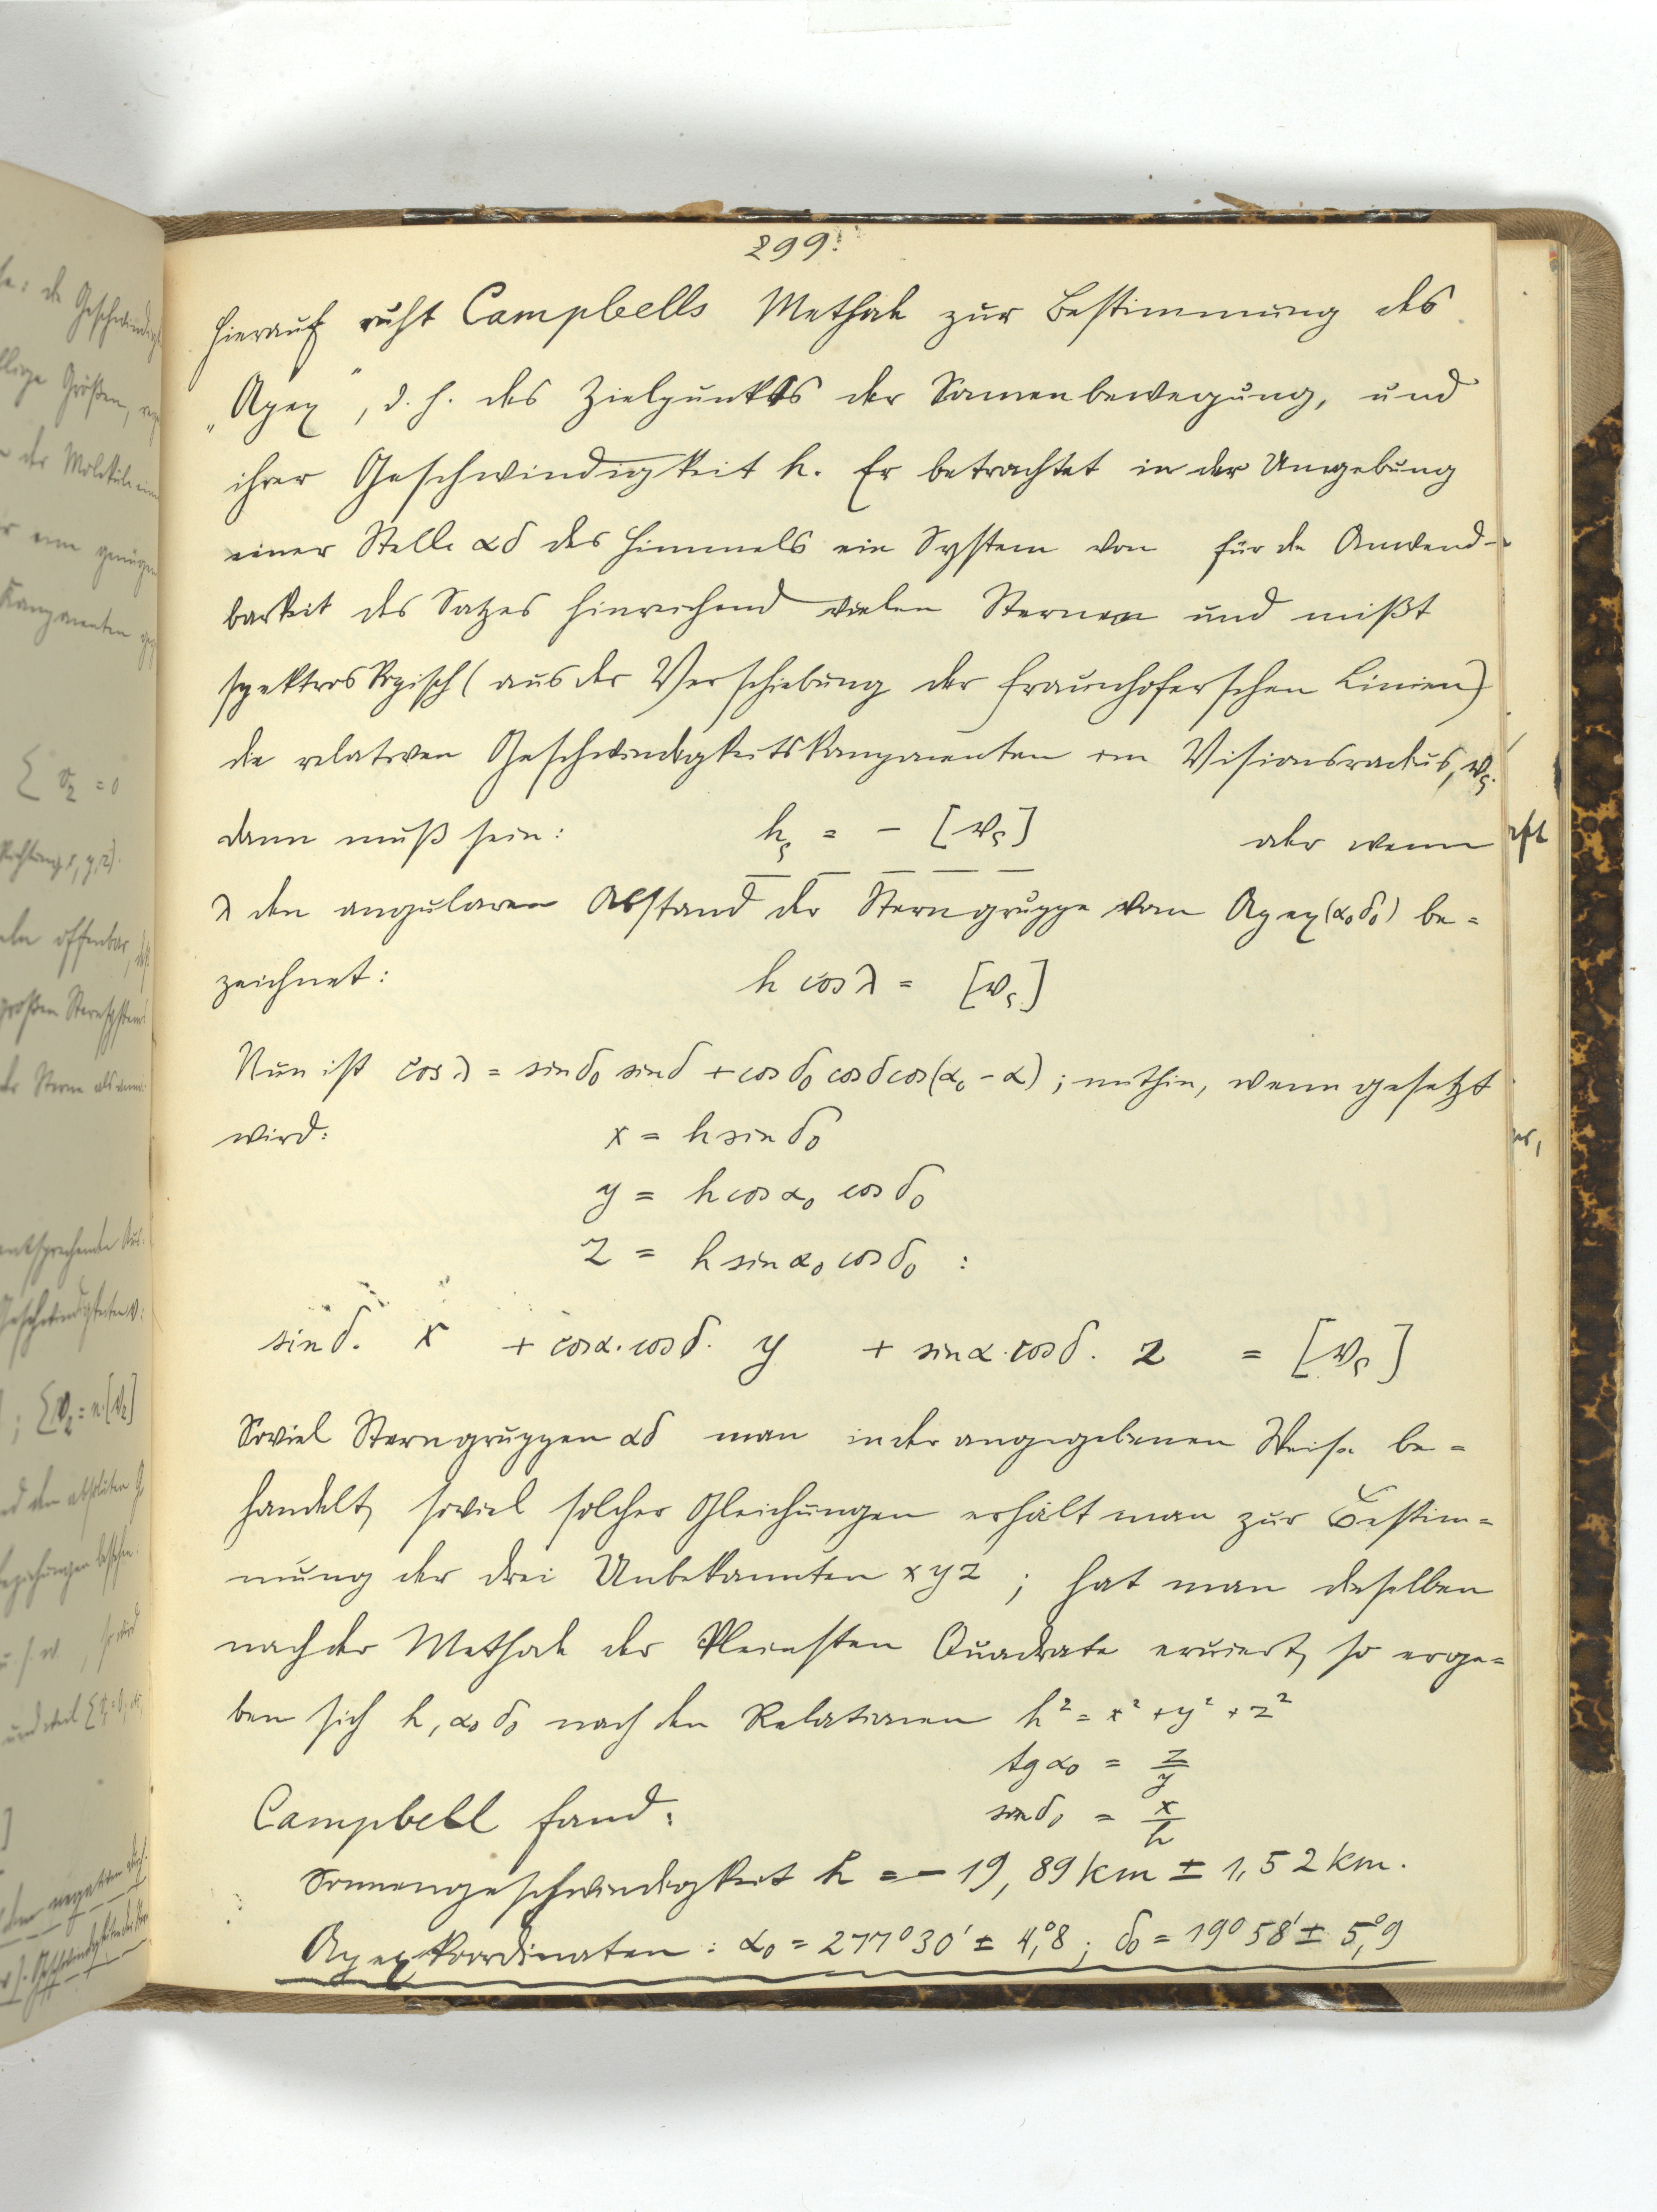 299.
Hierauf ruht Campbells Methode zur Bestimmung des
„Apex", d. h. des Zielpunktes der Sonnenbewegung, und
ihrer Geschwindigkeit h. Er betrachtet in der Umgebung
einer Stelle αδ des Himmels ein System von für die Anwend-
barkeit des Satzes hinreichend vielen Sternen und mißt
spektroskopisch (aus der Verschiebung der Fraunhoferschen Linien)
die relativen Geschwindigkeitskomponenten im Visionsradius, vς.
dann muß sein: hς = - [vς] oder wenn
λ den angularen Abstand der Sterngruppe vom Apex (α₀δ₀) be=
zeichnet: h cos λ = [vς]
Nun ist cos λ = sin δ₀ sin δ + cos δ₀ cos δ cos (α₀ - α) ; mithin, wenn gesetzt
wird: x = h sin δ₀
y = h cos α₀ cos δ₀
z = h sin α₀ cos δ₀ :
sin δ. x + cos α. cos δ. y + sin α. cos δ. z = [vς]
Soviel Sterngruppen αδ man in der angegebenen Weise be=
handelt, soviel solcher Gleichungen erhält man zur Bestim=
mung der drei Unbekannten x y z ; hat man dieselben
nach der Methode der kleinsten Quadrate eruiert, so erge=
ben sich h, α₀ δ₀ nach den Relationen h² = x² + y² + z²
tg α₀ = z/y
sin δ₀ = x/h
Campbell fand:
Sonnengeschwindigkeit h = - 19,89 km ± 1,52 km.
Apexkoordinaten : α₀ = 277° 30' ± 4,°8 ; δ₀ = 19° 58' ± 5,°9